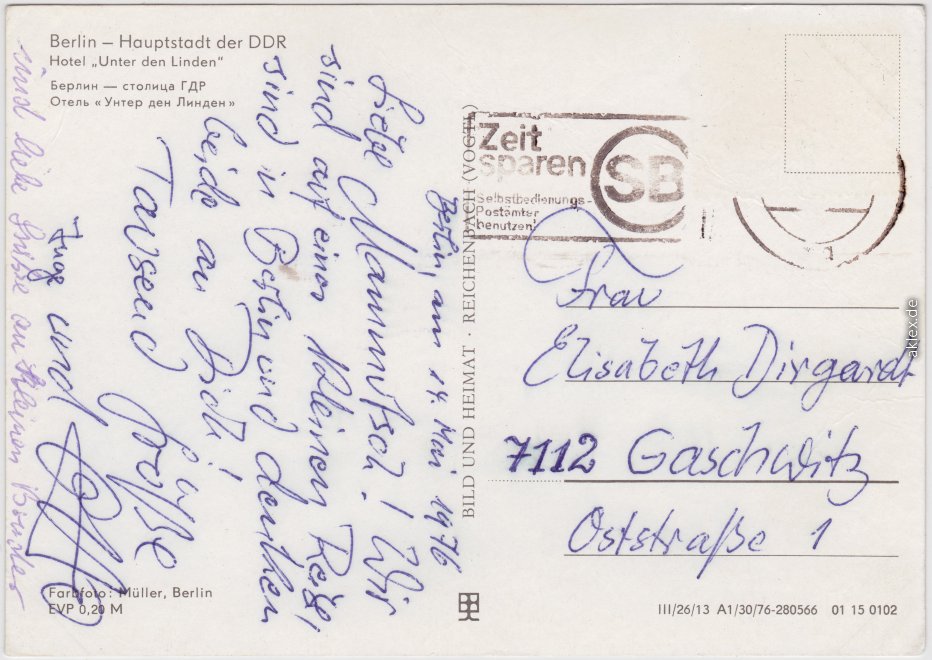 Berlin – Hauptstadt der DDR
Hotel „Unter den Linden“
Берлин — столица ГДР
Отель «Унтер ден Линден»
Berlin, am 14. Mai 1976
Liebe Mammitsch! Wir
sind auf einer kleinen Reise,
sind in Berlin und denken
beide an Dich!
Tausend Grüße
Inge und
und liebe Grüsse an kleinen Bruder
Farbfoto: Müller, Berlin
EVP 0,20 M
BILD UND HEIMAT · REICHENBACH (VOGTL)
Zeit
sparen
SB
Selbstbedienungs-
Postämter
benutzen!
Frau
Elisabeth Dirgardt
7112 Gaschwitz
Oststraße 1
III/26/13 A1/30/76-280566 01 15 0102
aklex.de